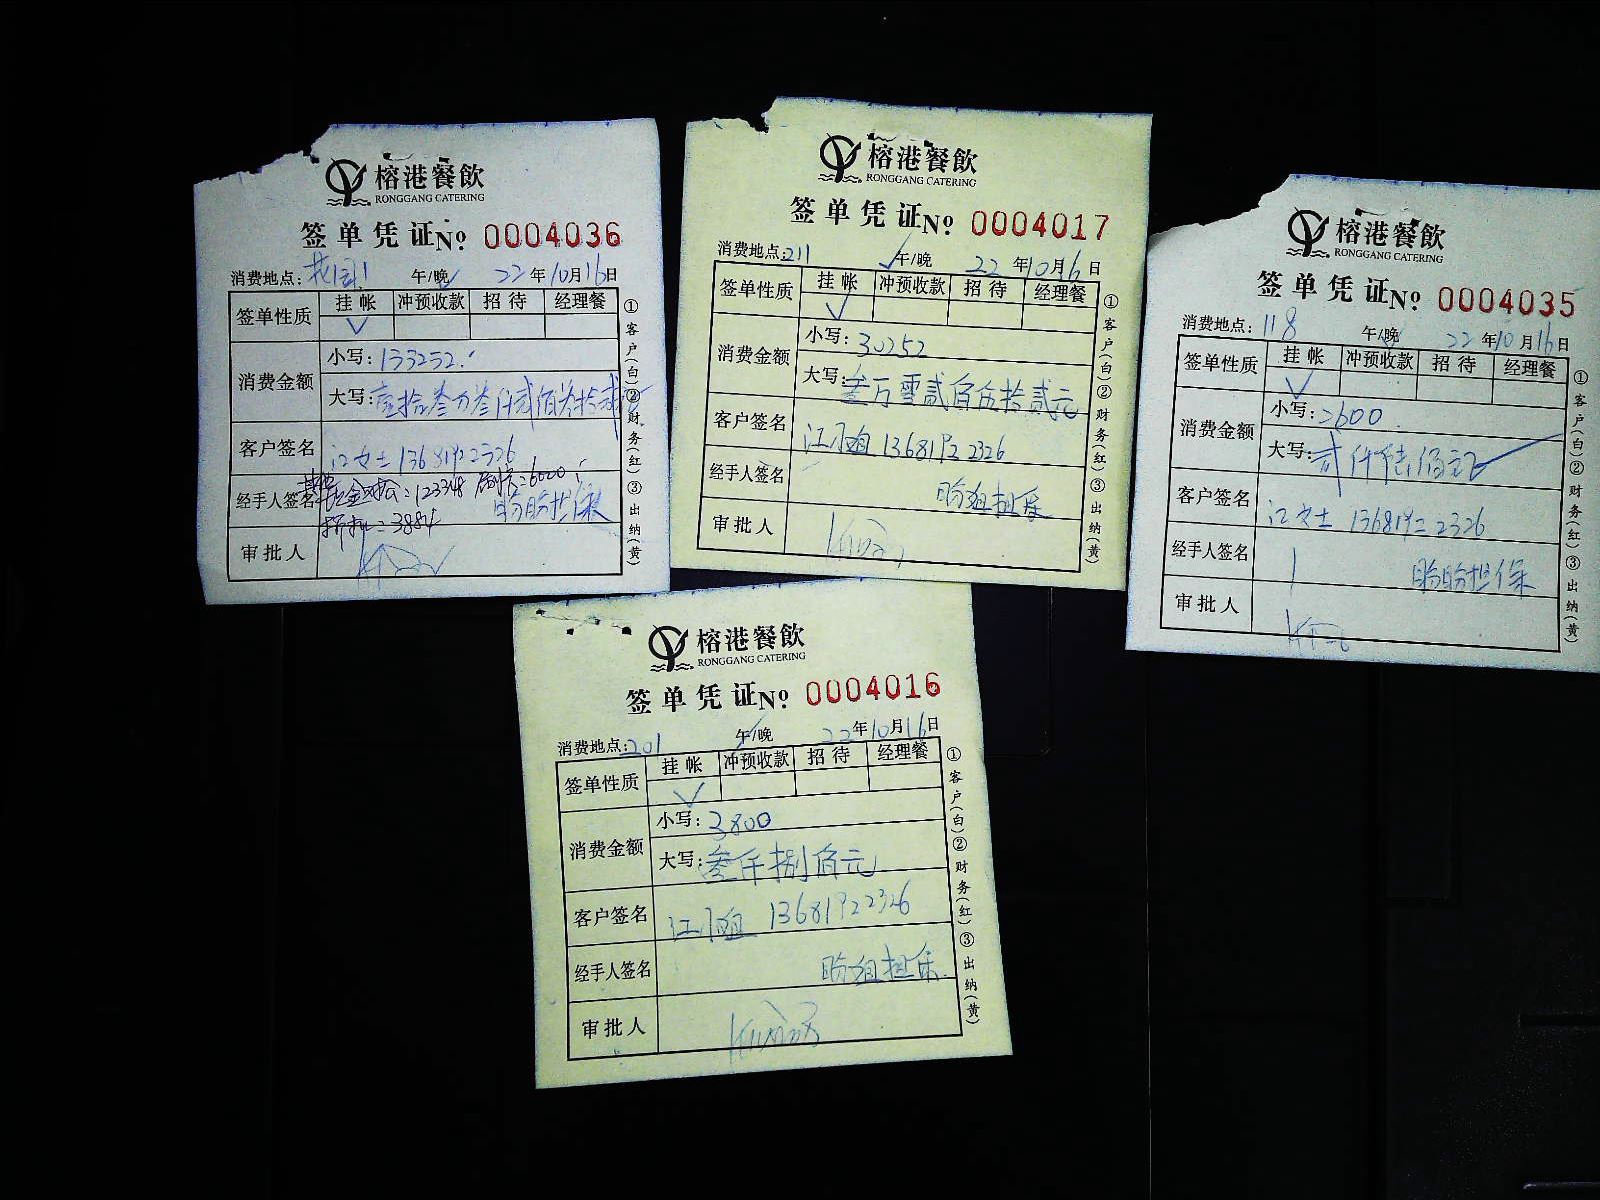 榕港餐飲
RONGGANG CATERING
签单凭证№ 0004036
消费地点:花园1 午/晚 22年10月16日
签单性质 挂帐 冲预收款 招待 经理餐
消费金额 小写:133232.
大写:壹拾叁万叁仟贰佰叁拾贰
客户签名 江女士 13681922326
经手人签名 盼盼担保
:123348 :6000
:3884
审批人
①客户(白)②财务(红)③出纳(黄)
榕港餐飲
RONGGANG CATERING
签单凭证№ 0004017
消费地点:211 午/晚 22年10月16日
签单性质 挂帐 冲预收款 招待 经理餐
消费金额 小写:30252
大写:叁万零贰佰伍拾贰元
客户签名 江小姐 13681922326
经手人签名 盼姐担保
审批人
①客户(白)②财务(红)③出纳(黄)
榕港餐飲
RONGGANG CATERING
签单凭证№ 0004035
消费地点:118 午/晚 22年10月16日
签单性质 挂帐 冲预收款 招待 经理餐
消费金额 小写:2600
大写:贰仟陆佰元
客户签名 江女士 13681922326
经手人签名 盼盼担保
审批人
①客户(白)②财务(红)③出纳(黄)
榕港餐飲
RONGGANG CATERING
签单凭证№ 0004016
消费地点:201 午/晚 22年10月16日
签单性质 挂帐 冲预收款 招待 经理餐
消费金额 小写:3800
大写:叁仟捌佰元
客户签名 江小姐 13681922326
经手人签名 盼姐担保
审批人
①客户(白)②财务(红)③出纳(黄)